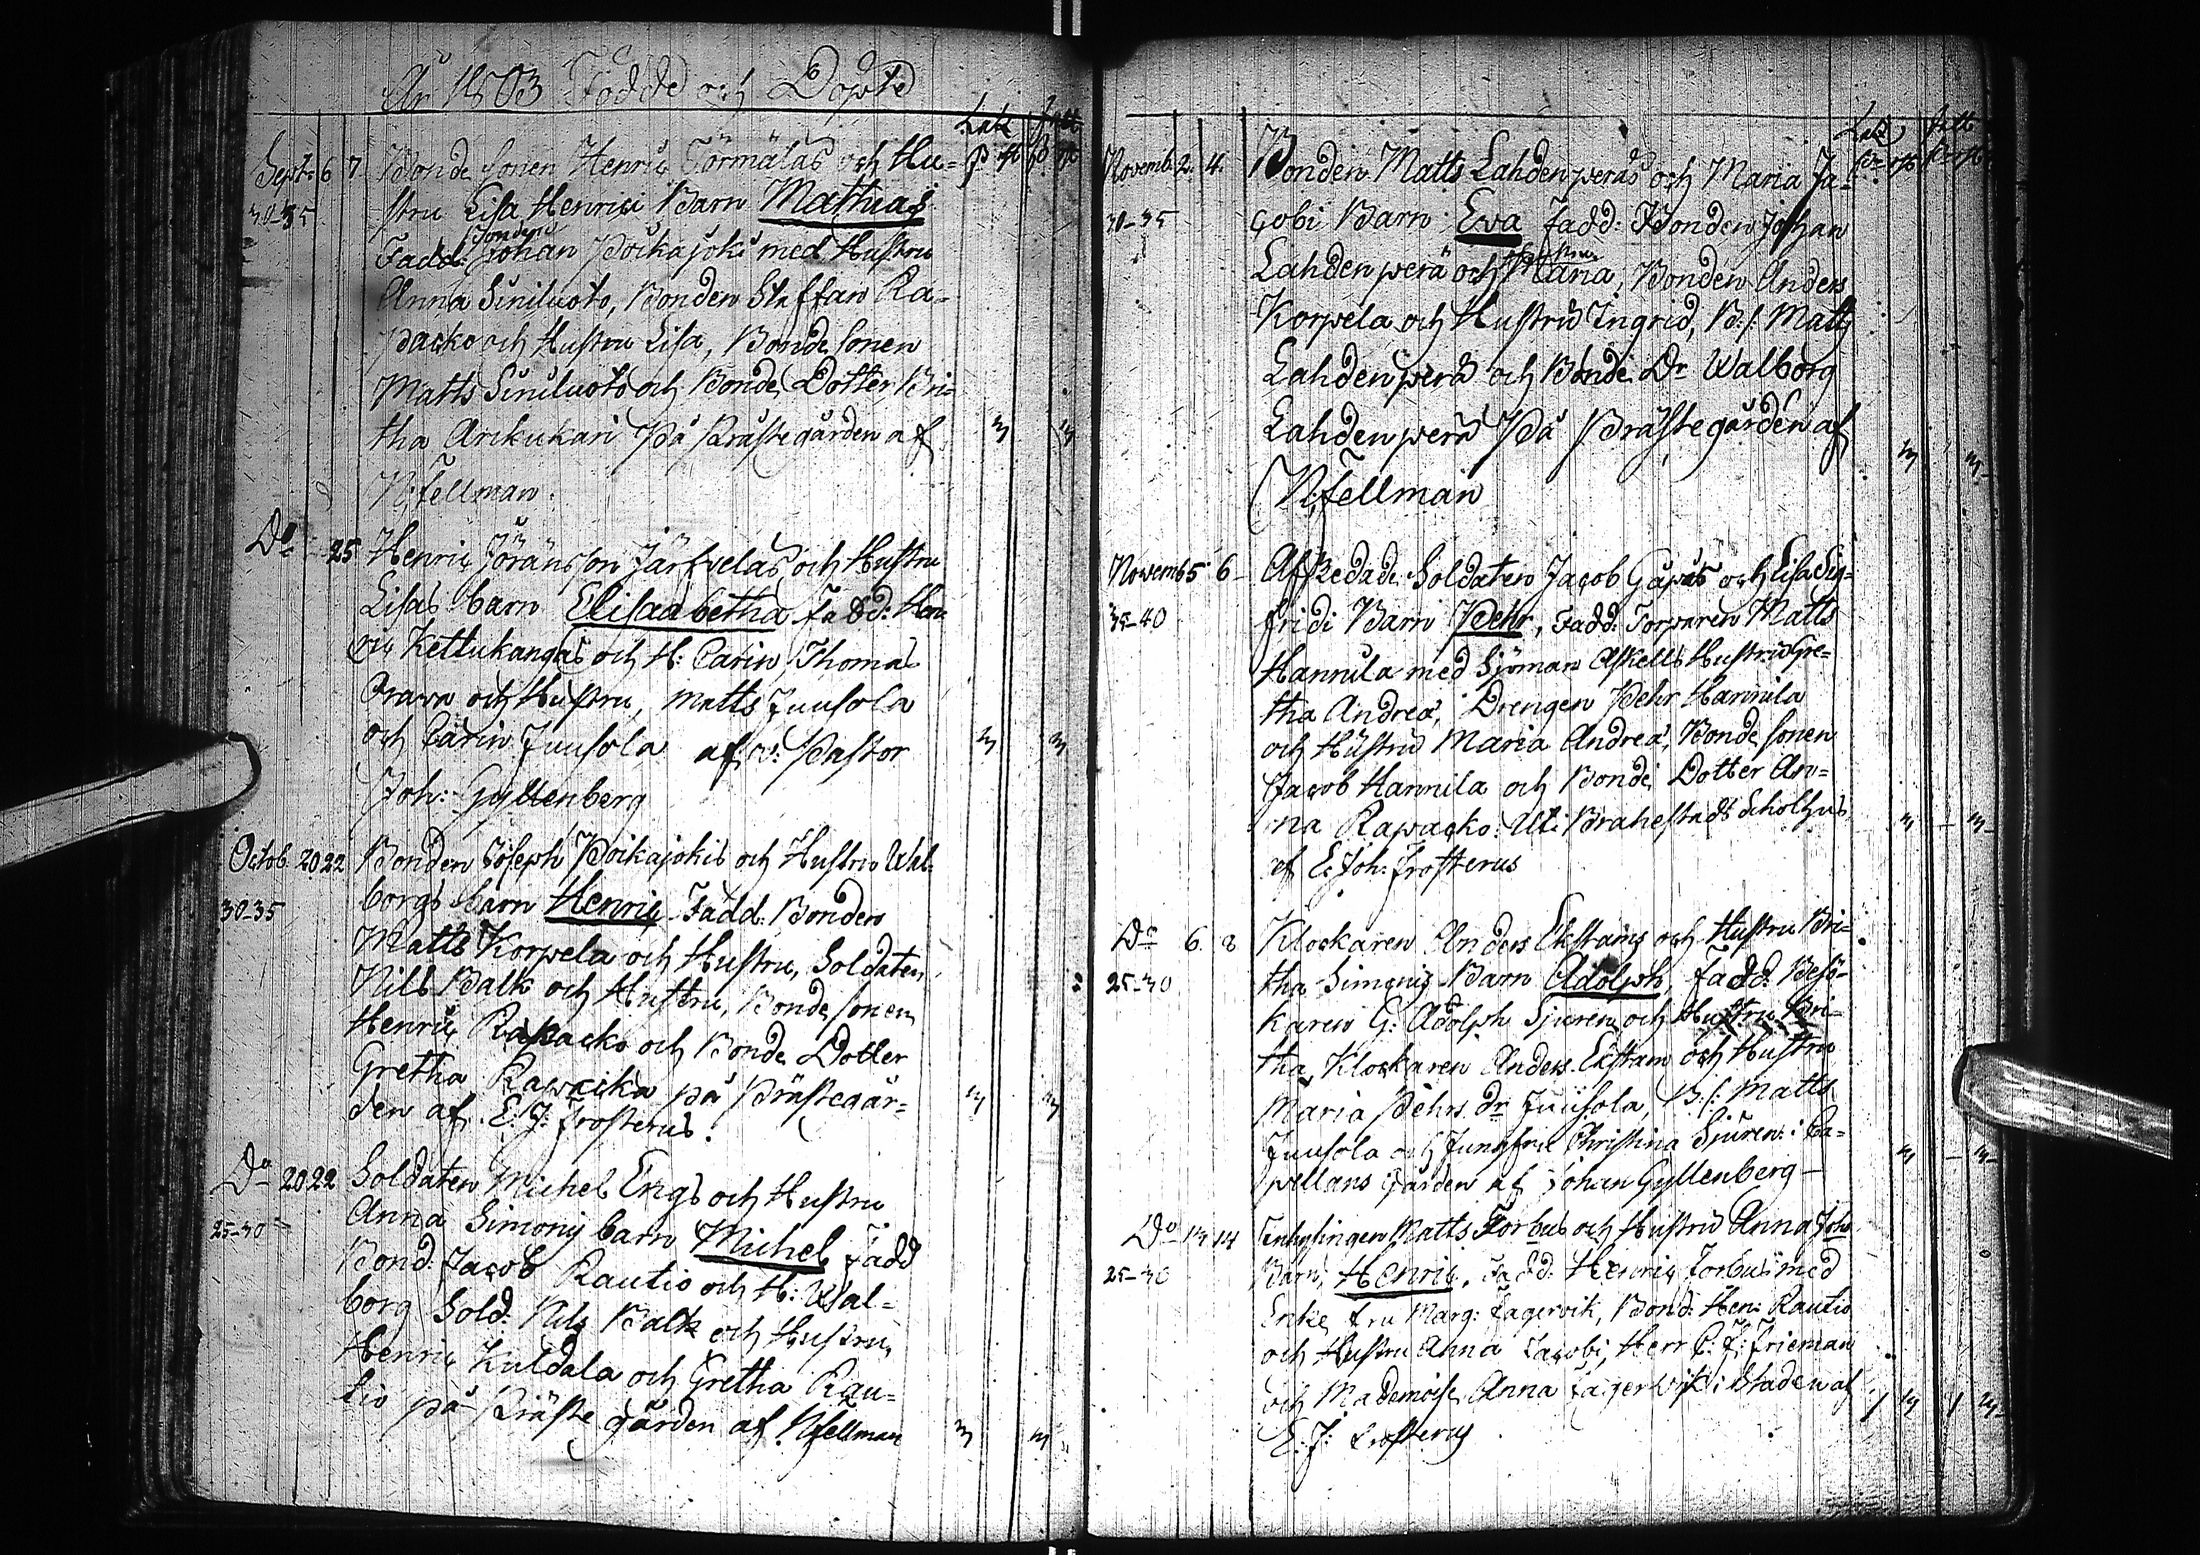 År 1803 Födde och Döpte
Sept: 6 7 Bonde sonen Henric Törmälas och Hu=
30-35 stru Lisa Henrici Barn Mathias
Bonden
Fadd: Johan Poikajoki med Hustru
Anna Siniluoto, Bonden Staffan Ra=
packo och Hustru Lisa, Bonde sonen
Matts Siniluoto och Bonde Dotter Bri=
tha Arckukari På Prästegården af
N: fellman
Do 25 Henric Jöransson Järfvelas och Hustru
Lisas barn Elisaabetha Fadd: Hen
ric Kettukangas och H: Carin, Thomas
Orawa och Hustru, Matts Juusola
och Carin Juusola af v: Pastor
Joh: Gyllenberg
Octob. 20 22 Bonden Joseph Poikajokis och Hustru Wal=
30-35 borgs barn Henric Fadd: Bonden
Matts Korpela och Hustru, Soldaten
Nils Balk och Hustru, Bonde sonen
Henric Rapacko och Bonde Dotter
Gretha på Prästegår=
den af E: J: Frosterus.
Do 20 22 Soldaten Michel Engs och Hustru
25-30 Anna Simonis barn Michel Fadd
Bond: Jacob Rautio och H: Wal=
borg Sold: Nils Balk och Hustru,
Henric Kuldala och Gretha Rau=
tio på Präste gården af N fellman
Novemb: 2. 4. Bonden Matts Lahdenperäs och Maria Ja=
30-35 cobi Barn Eva Fadd: Bonden Johan
Hustru
Lahdenperä och Maria, Bonden Anders
Korpela och Hustru Ingrid, B: s: Matts
Lahdenperä och Bonde Dr Walborg
Lahdenperä På Prästegården af
N: fellman
Novemb 5 6 Afskedade Soldaten Jacob och Lisa Sig=
35-40 fridi Barn Pehr, Fadd: Torparen Matts
Hannila med Sjöman Askells Hustru Gre=
tha Andreæ, Drengen Pehr Hannila
och Hustru Maria Andreæ, Bonde sonen
Jacob Hannila och Bonde Dotter An=
na Rapacko. Uti Brahestads Scholhus
af E: Joh: Frosterus
Do 6. 8 Klockaren Anders Ekstams och Hustru Bri=
25-30 tha Simonis Barn Adolph, Fadd: Besö=
karen G: Adolph Sjuren och Hustru Bri=
tha Klockaren Anders Ekstam och Hustru
Maria Pehrs dr Juusola, B: s: Matts
Juusola och Jungfru Christina Sjuren i Ca=
pellans Gården af Johan Gyllenberg
Do 13 14 Matts Forbus och Hustru Anna Joh
25-30 Barn, Henric, Fadd: Henric Forbus med
Enke fru Marg: Lagervik, Bond: Hen: Rautio
och Hustru Anna Jacobi, Herr C: F: Frieman
och Mademoise Anna Lagervik i Staden af
E: J: Frosterus